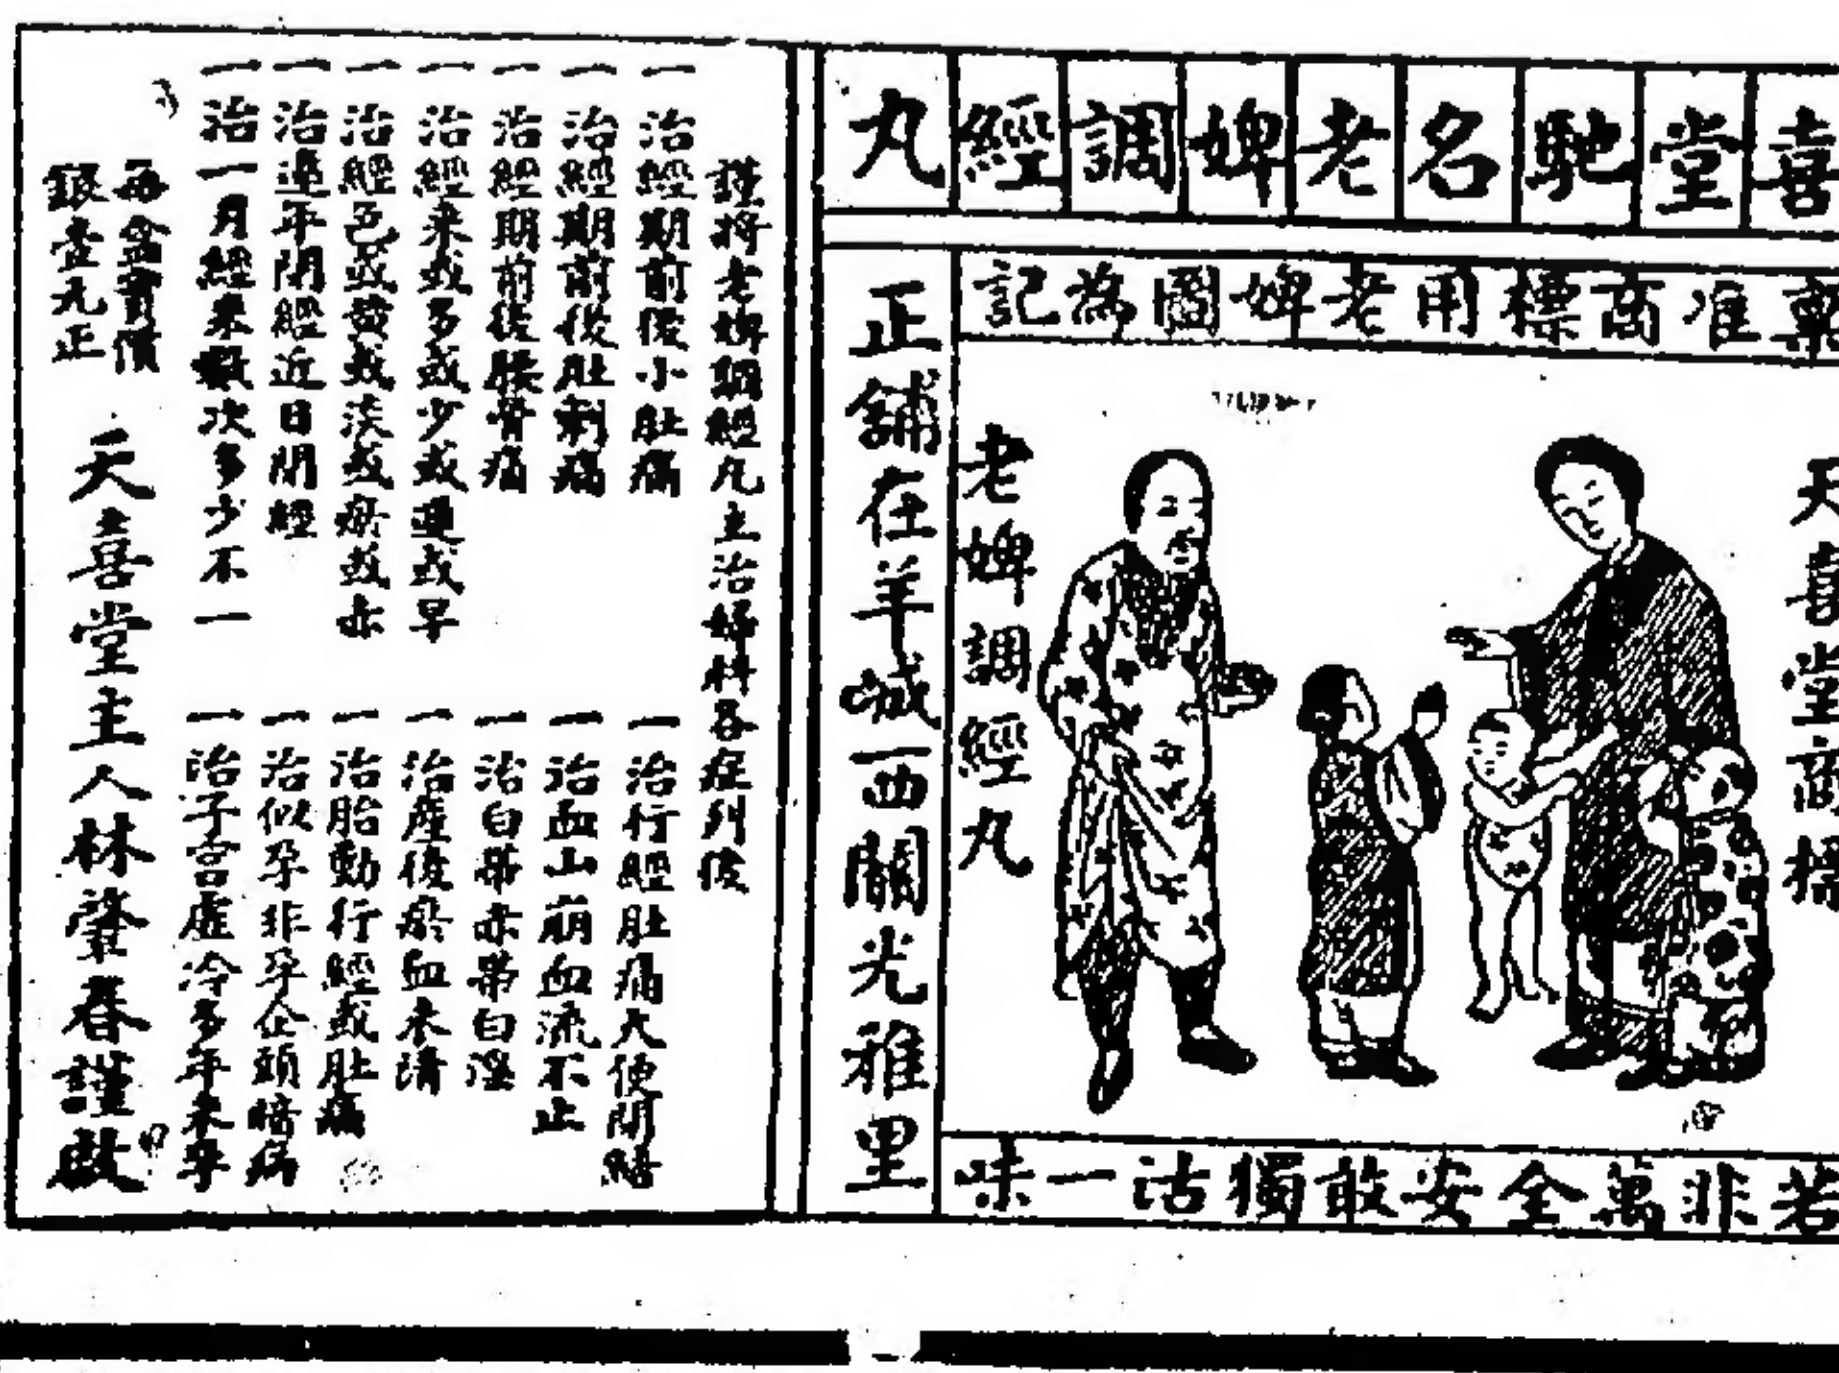 喜堂馳名老婢調經丸
稟准商標用老婢圖為記
天喜堂商標
老婢調經丸
若非萬全安敢獨沽一味
正舖在羊城西關光雅里
謹將老婢調經丸主治婦科各症列後
一治經期前後小肚痛
一治經期前後肚刺痛
一治經期前後腰骨痛
一治經來或多或少或遲或早
一治經色或黄或淡或瘀或赤
一治連年閉經近日閉經
一治一月經來數次多少不一
一治行經肚痛大便閉結
一治血山崩血流不止
一治白帶赤帶白淫
一治產後瘀血未清
一治胎動行經或肚痛
一治似孕非孕企頭暗病
一治子宮虛冷多年未孕
每盒實價
銀壹元正
天喜堂主人林肇春謹啟